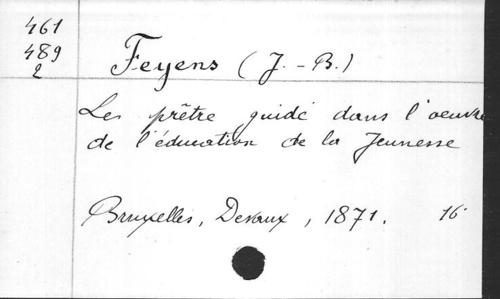 461
489
2
Feyens (J.-B.)
Le prêtre guidé dans l'oeuvre
de l'éducation de la Jeunesse
Bruxelles, Devaux, 1871. 16°